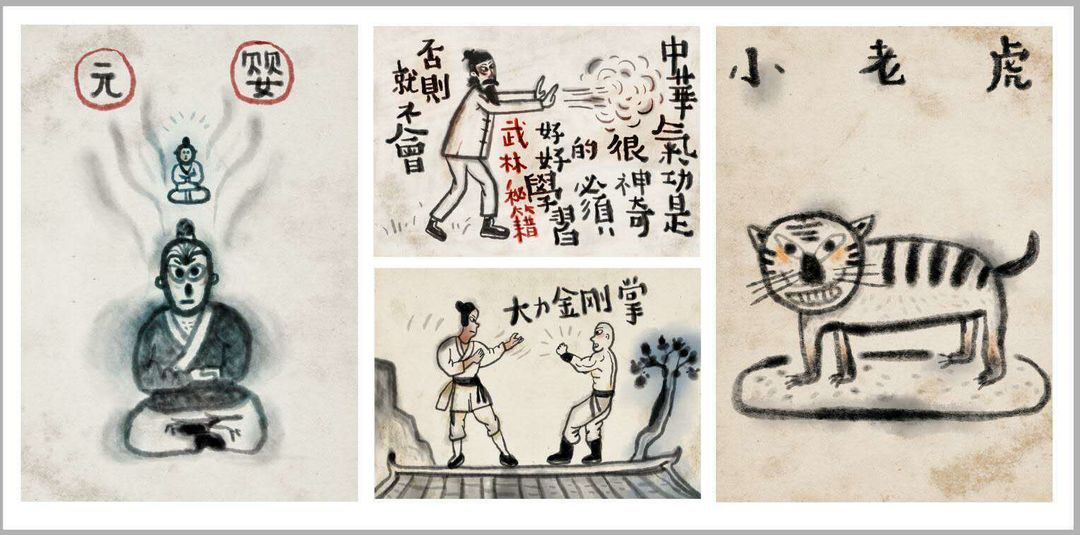 元婴
中華氣功是
很神奇
的必須
好好學習
武林秘籍
否則
就不會
大力金剛掌
小老虎